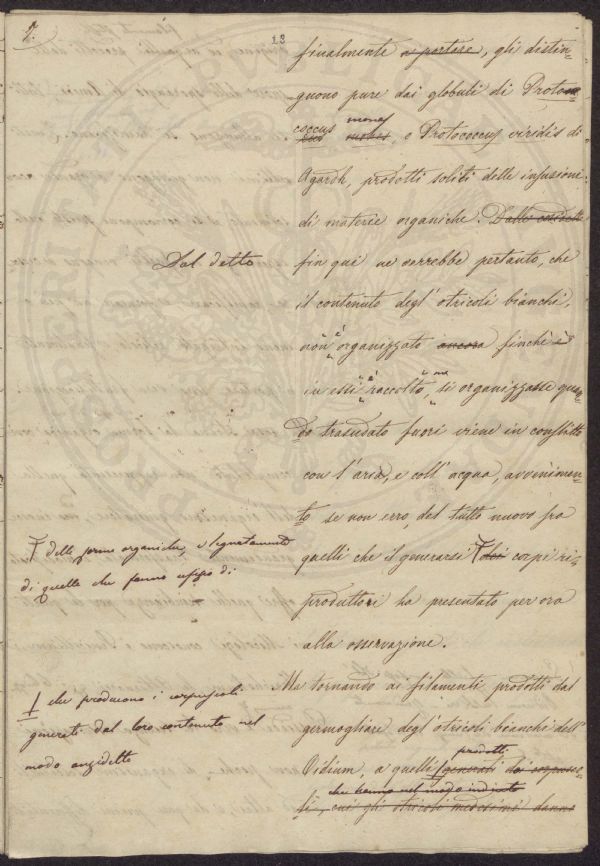 7.
13
finalmente a portare, gli distin=
guono pure dai globuli di Proto
coccus monas
, e Protococcus viridis di
Agardh, prodotti soliti delle infusioni
di materie organiche. Dalle
Dal detto
fin qui ne verrebbe pertanto, che
il contenuto degl' otricoli bianchi,
non è organizzato ancora finchè è
in essi è raccolto, ma si organizzasse quan=
do trasudato fuori viene in conflitto
con l'aria, e coll' acqua, avvenimen=
to se non erro, del tutto nuovo fra
quelli che il generarsi dei corpi ri=
produttori ha presentato per ora
alla osservazione.
delle forme organiche, e segnatamente
di quelle che fanno ufizio di
Ma tornando ai filamenti prodotti dal
germogliare degl' otricoli bianchi dell'
Oidium, a quelli generati dai corpusco=
prodotti
che hanno nel modo indicato
li, cui gli otricoli medesimi danno
che producono i corpuscoli
generati dal loro contenuto nel
modo anzidetto